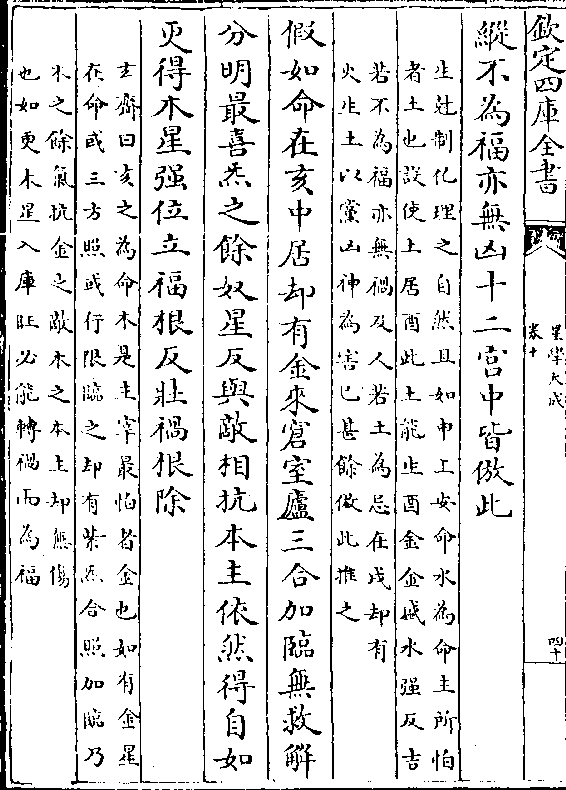 欽定四庫全書
星學大成
卷十
四十
縱不為福亦無凶十二宮中皆倣此
生尅制化理之自然且如申上安命水為命主所怕
者土也設使土居酉此土能生酉金金盛水强反吉
若不為福亦無禍及人若土為忌在戌却有
火生土以黨凶神為害已甚餘倣此推之
假如命在亥中居却有金來窘室廬三合加臨無救解
分明最喜炁之餘奴星反與敵相抗本主依然得自如
更得木星强位立福根反壯禍根除
玄齋曰亥之為命木是主宰最怕者金也如有金星
在命或三方照或行限臨之却有紫炁合照加臨乃
木之餘氣抗金之敵本之本主却無傷
也如更木星入庫旺必能轉禍而為福